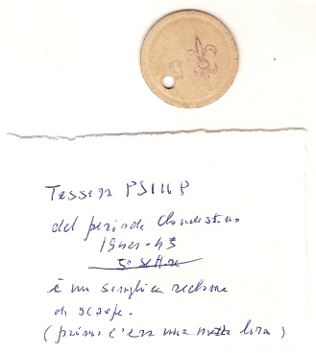 Tessera PSIUP
del periodo clandestino
1944-45
5° settore
è un semplice reclame
di scarpe.
(prima c'era una mezza lira)